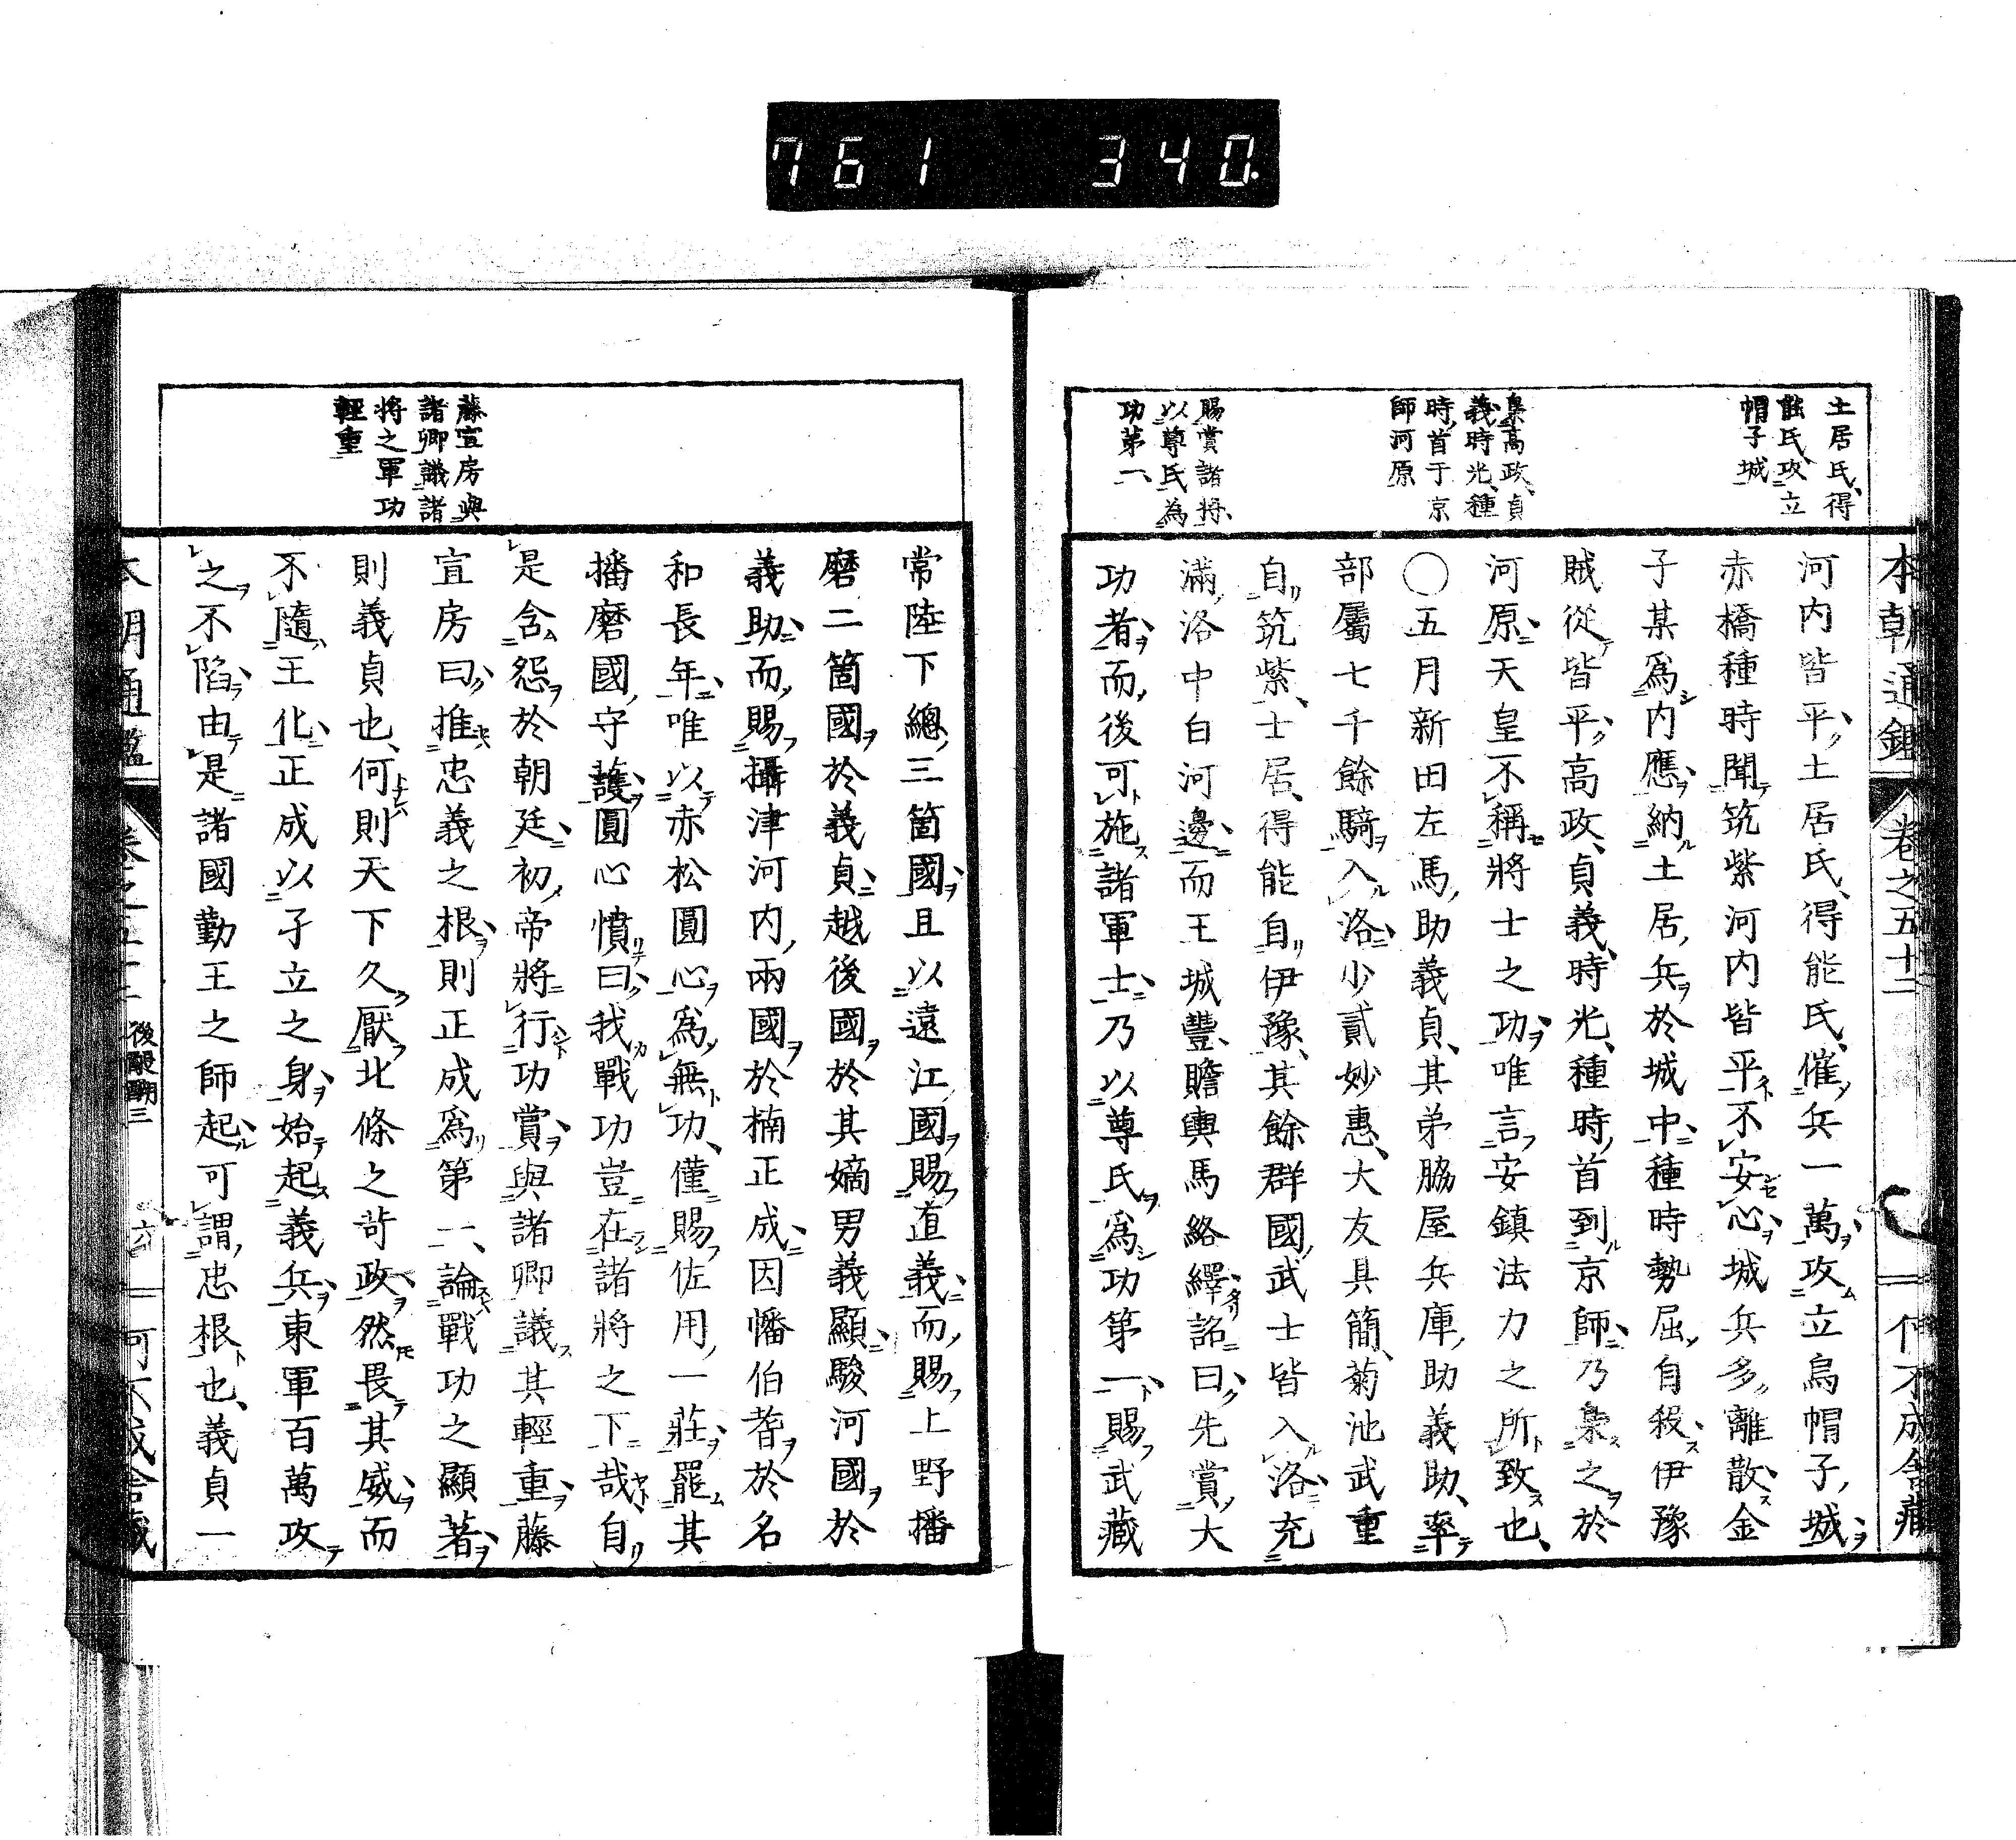 761 340.
本朝通鑑 卷之五十二 何不成舍藏
土居氏、得
能氏、攻立
帽子城
梟高政、貞
義時光、種
時、首于京
師河原
賜賞諸將、
以尊氏為
功第一、
河内皆平、土居氏、得能氏、催兵一萬、攻立烏帽子、城、
赤橋種時聞筑紫河内皆平不安心城兵多離散、金
子某爲内應、納土居、兵於城中、種時勢屈自殺、伊豫
賊從皆平、高政、貞義、時光、種時、首到京師、乃梟之於
河原、天皇不稱將士之功、唯言安鎮法力之所致也、
〇五月新田左馬助義貞、其弟脇屋兵庫助義助、率
部屬七千餘騎入洛、少貳妙惠、大友具簡、菊池武重
自筑紫、士居、得能自伊豫、其餘群國武士皆入洛、充
滿洛中白河邊、而王城豐贍輿馬絡繹、詔曰、先賞大
功者、而後可施諸軍士、乃以尊氏爲功第一、賜武藏
藤宣房與
諸卿議諸
將之軍功
輕重
常陸下總三箇國、且以遠江國賜直義、而賜上野播
磨二箇國於義貞、越後國於其嫡男義顯、駿河國於
義助、而賜攝津河内兩國於楠正成、因幡伯耆於名
和長年、唯以赤松圓心爲無功、僅賜佐用一莊、罷其
播磨國守護、圓心憤曰、我戰功豈在諸將之下哉、自
是含怨於朝廷、初帝將行功賞、與諸卿議其輕重、藤
宣房曰、推忠義之根、則正成爲第一、論戰功之顯著、
則義貞也、何則天下久厭北條之苛政、然畏其威、而
不隨王化、正成以孑立之身、始起義兵、東軍百萬攻
之不陷、由是諸國勤王之師起、可謂忠根也、義貞一
本朝通鑑 卷之五十二 後醍醐三 六 何不成舍藏